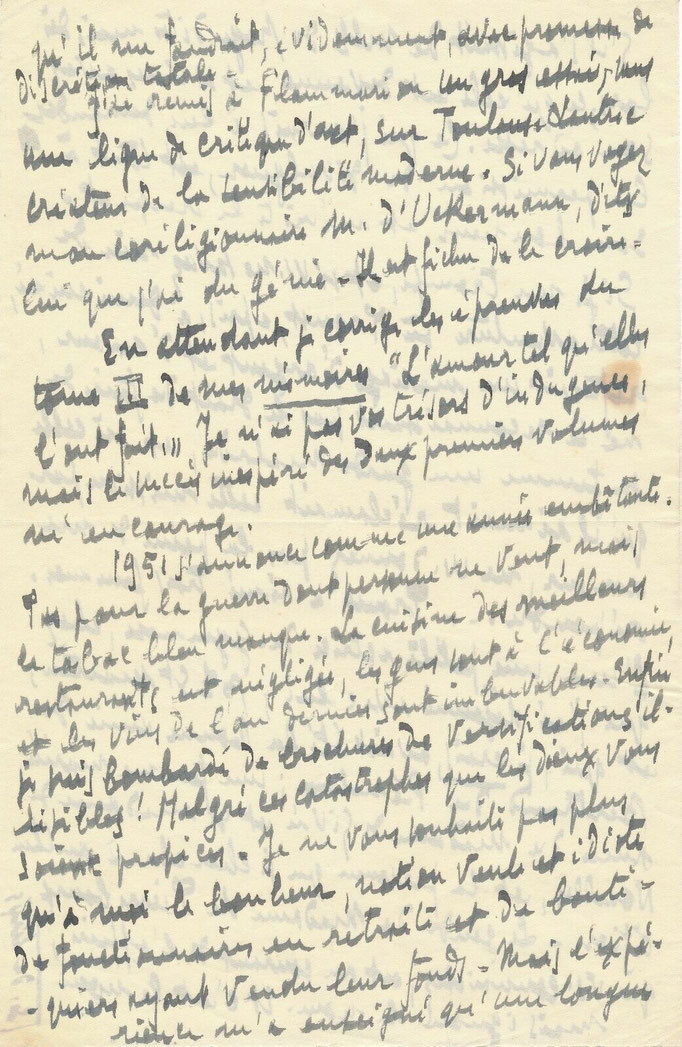 qu'il me faudrait, évidemment, avec promesse de
discrétion totale -
J'ai remis à Flammarion un gros essai, sans
une ligne de critique d'art, sur Toulouse-Lautrec
créateur de la sensibilité moderne. Si vous voyez
mon coreligionnaire M. d'Uckermann, dites
lui que j'ai du génie - Il est fichu de le croire -
En attendant je corrige les épreuves du
tome III de mes mémoires "L'amour tel qu'elles
l'ont fait." Je n'ai pas vos trésors d'indulgences,
mais le succès inespéré des deux premiers volumes
m'encourage.
1951 s'annonce comme une année embêtante.
Pas pour la guerre dont personne ne veut, mais
le tabac bleu manque. La cuisine des meilleurs
restaurants est négligée, les gens sont à l'économie,
et les vins de l'an dernier sont imbuvables - Enfin
je suis bombardé de brochures de versifications il-
lisibles! Malgré ces catastrophes que les dieux vous
soient propices - Je ne vous souhaite pas plus
qu'à moi le bonheur, notion veule et idiote
de fonctionnaires en retraite et de bouti-
-quiers ayant vendu leur fonds - Mais l'expé-
rience m'a enseigné qu'une longue